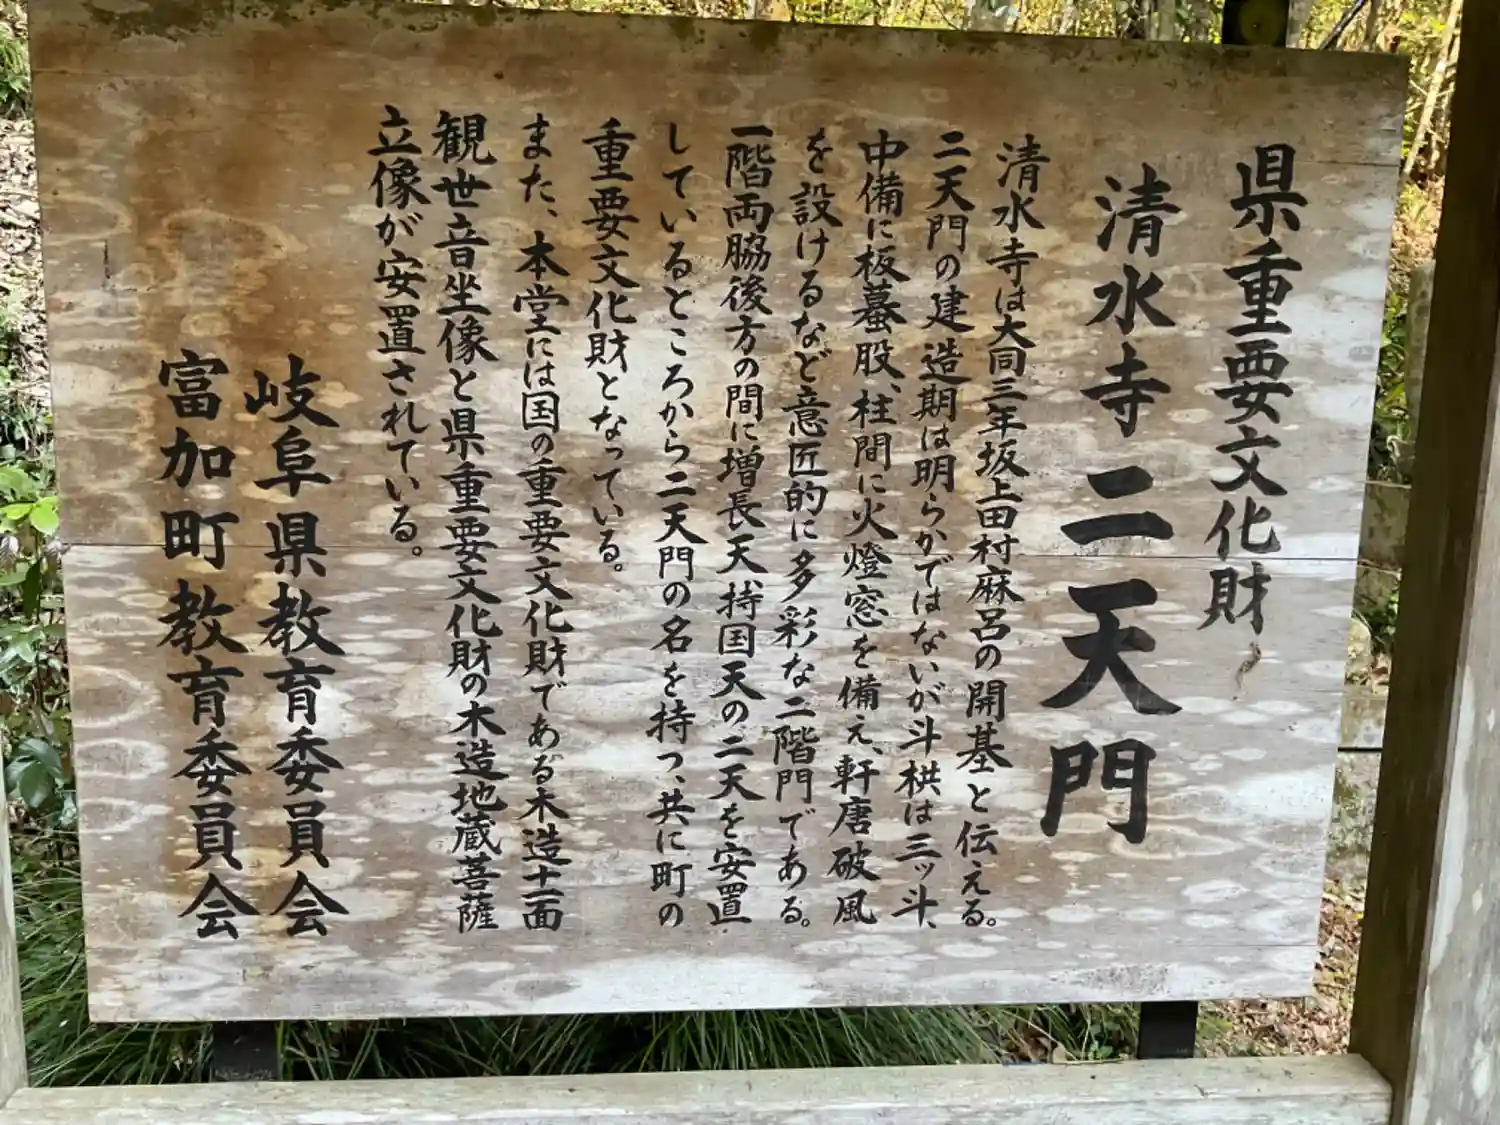 県重要文化財
清水寺二天門
清水寺は大同三年坂上田村麻呂の開基と伝える。
二天門の建造期は明らかではないが斗栱は三ッ斗、
中備に板蟇股、柱間に火燈窓を備え、軒唐破風
を設けるなど意匠的に多彩な二階門である。
一階両脇後方の間に増長天、持国天の二天を安置
しているところから二天門の名を持つ、共に町の
重要文化財となっている。
また、本堂には国の重要文化財である木造十一面
観世音坐像と県重要文化財の木造地蔵菩薩
立像が安置されている。
岐阜県教育委員会
富加町教育委員会